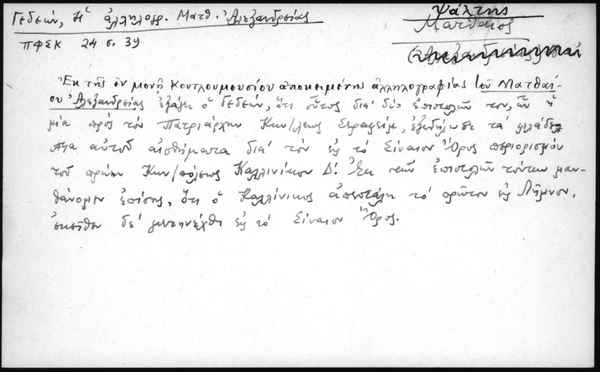 Γεδεών, Ἡ ἀλληλογρ. Ματθ. Ἀλεξανδρείας
Ψάλτης
Ματθαῖος
ΠΦΣΚ 24 σ. 39
Ἐκ τῆς ἐν μονῇ Κουτλουμουσίου ἀποκειμένης ἀλληλογραφίας τοῦ Ματθαί-
ου Ἀλεξανδρείας ἐξάγει ὁ Γεδεών, ὅτι οὗτος διὰ δύο ἐπιστολῶν του, ὧν ἡ
μία πρὸς τὸν Πατριάρχην Κων/λεως Σεραφείμ, ἐξεδήλωσε τὰ φιλάδελ-
φα αὐτοῦ αἰσθήματα διὰ τὸν εἰς τὸ Σίναιον Ὄρος περιορισμὸν
τοῦ πρώην Κων/πόλεως Καλλινίκου Δ΄. Ἐκ τῶν ἐπιστολῶν τούτων μαν-
θάνομεν ἐπίσης, ὅτι ὁ Καλλίνικος ἀπεστάλη τὸ πρῶτον εἰς Λῆμνον,
ἐκεῖθεν δὲ μετηνέχθη εἰς τὸ Σίναιον Ὄρος.